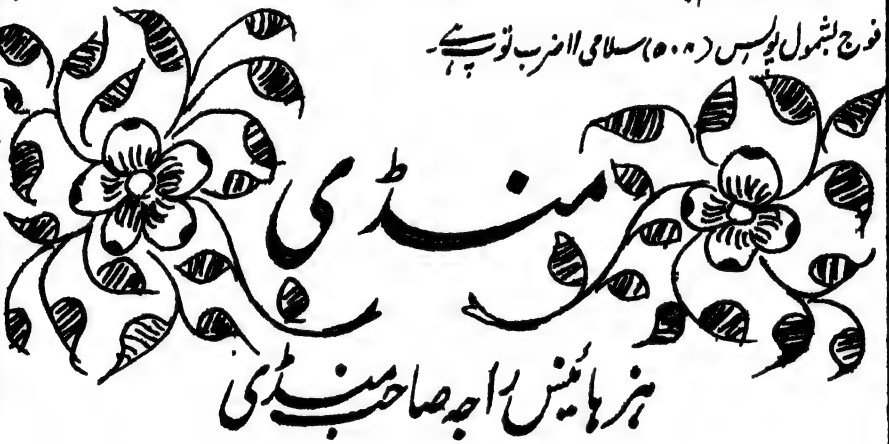 فوج بشمول پولیس (۵۰۸) سلامی ۱۱ ضرب توپ ہے۔
منڈی
ہز ہائینس راجہ صاحب منڈی